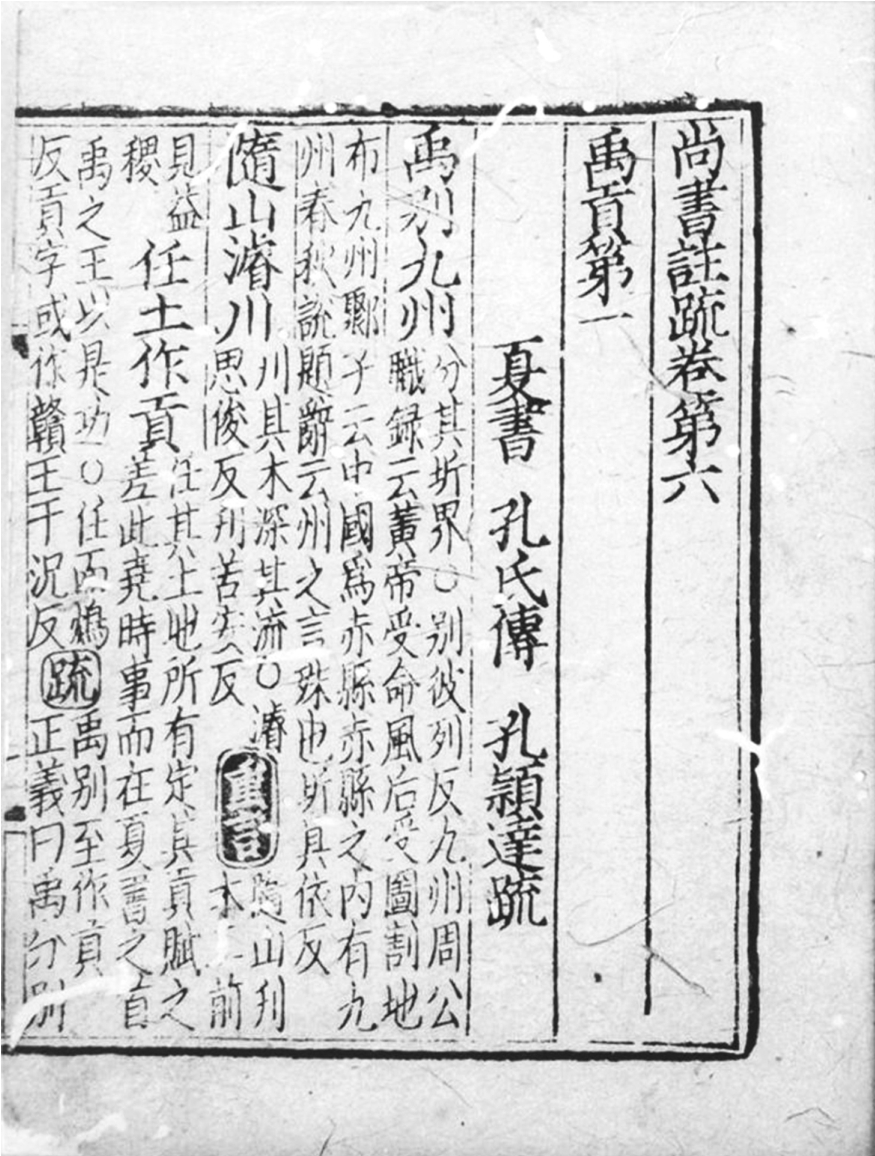 尚書註疏卷第六
禹貢第一
夏書 孔氏傳 孔穎達疏
禹別九州
分其圻界○別彼列反九州周公
職録云黃帝受命風后受圖割地
布九州鄹子云中國爲赤縣赤縣之内有九
州春秋説題辭云州之言殊也圻具依反
隨山濬川
刋其木深其流○濬
思俊反刋苦安反
重言
隨山刋
木二前
見益
稷
任土作貢
任其土地所有定其貢賦之
差此堯時事而在夏書之首
禹之王以是功○任而鴆
反貢字或作贛王于況反
疏
禹別至作貢
正義曰禹分別